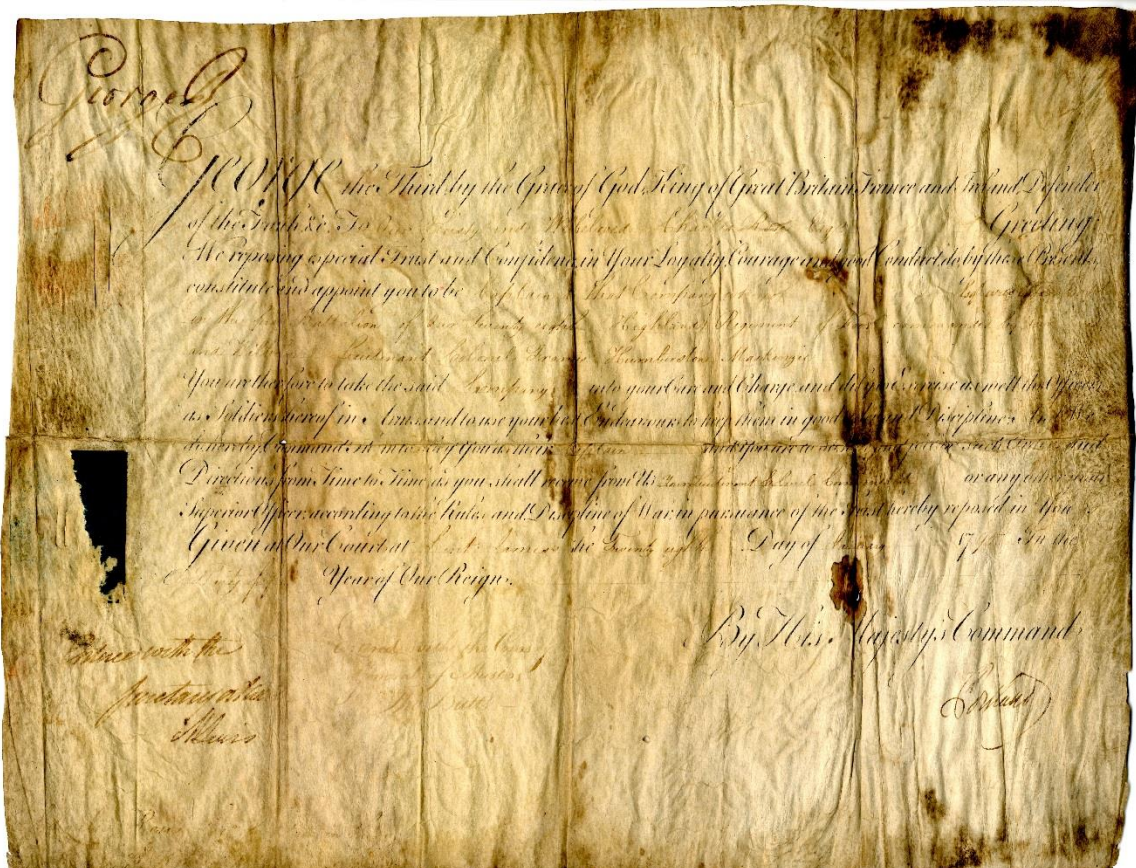 George R
George the Third by the Grace of God, King of Great Britain France and Ireland, Defender
of the Faith &c. To Our Trusty and Welbeloved Esqr. Greeting:
We reposing especial Trust and Confidence in Your Loyalty, Courage and good Conduct do by these Presents
constitute and appoint you to be Captain of that Company
to the Battalion of Our Seventy eighth Highland Regiment of Foot commanded by
Lieutenant Colonel Francis Humberston Mackenzie
You are therefore to take the said Company into your Care and Charge and duly to Exercise as well the Officers
as Soldiers thereof in Arms, and to use your best Endeavours to keep them in good Order and Discipline; And We
do hereby Command them to Obey you as their Captain and you are to observe and follow such Orders and
Directions from Time to Time as you shall receive from Us Your Lieutenant Colonel Commandant or any other your
Superior Officer, according to the Rules and Discipline of War, in pursuance of the Trust hereby reposed in You.
Given at Our Court at Saint James's the Twenty eighth Day of 1795 In the
Thirty fifth Year of Our Reign.
By His Majesty's Command
Entered with the
Secretary at War
MLewis
Entered with the
General of Musters
Portland